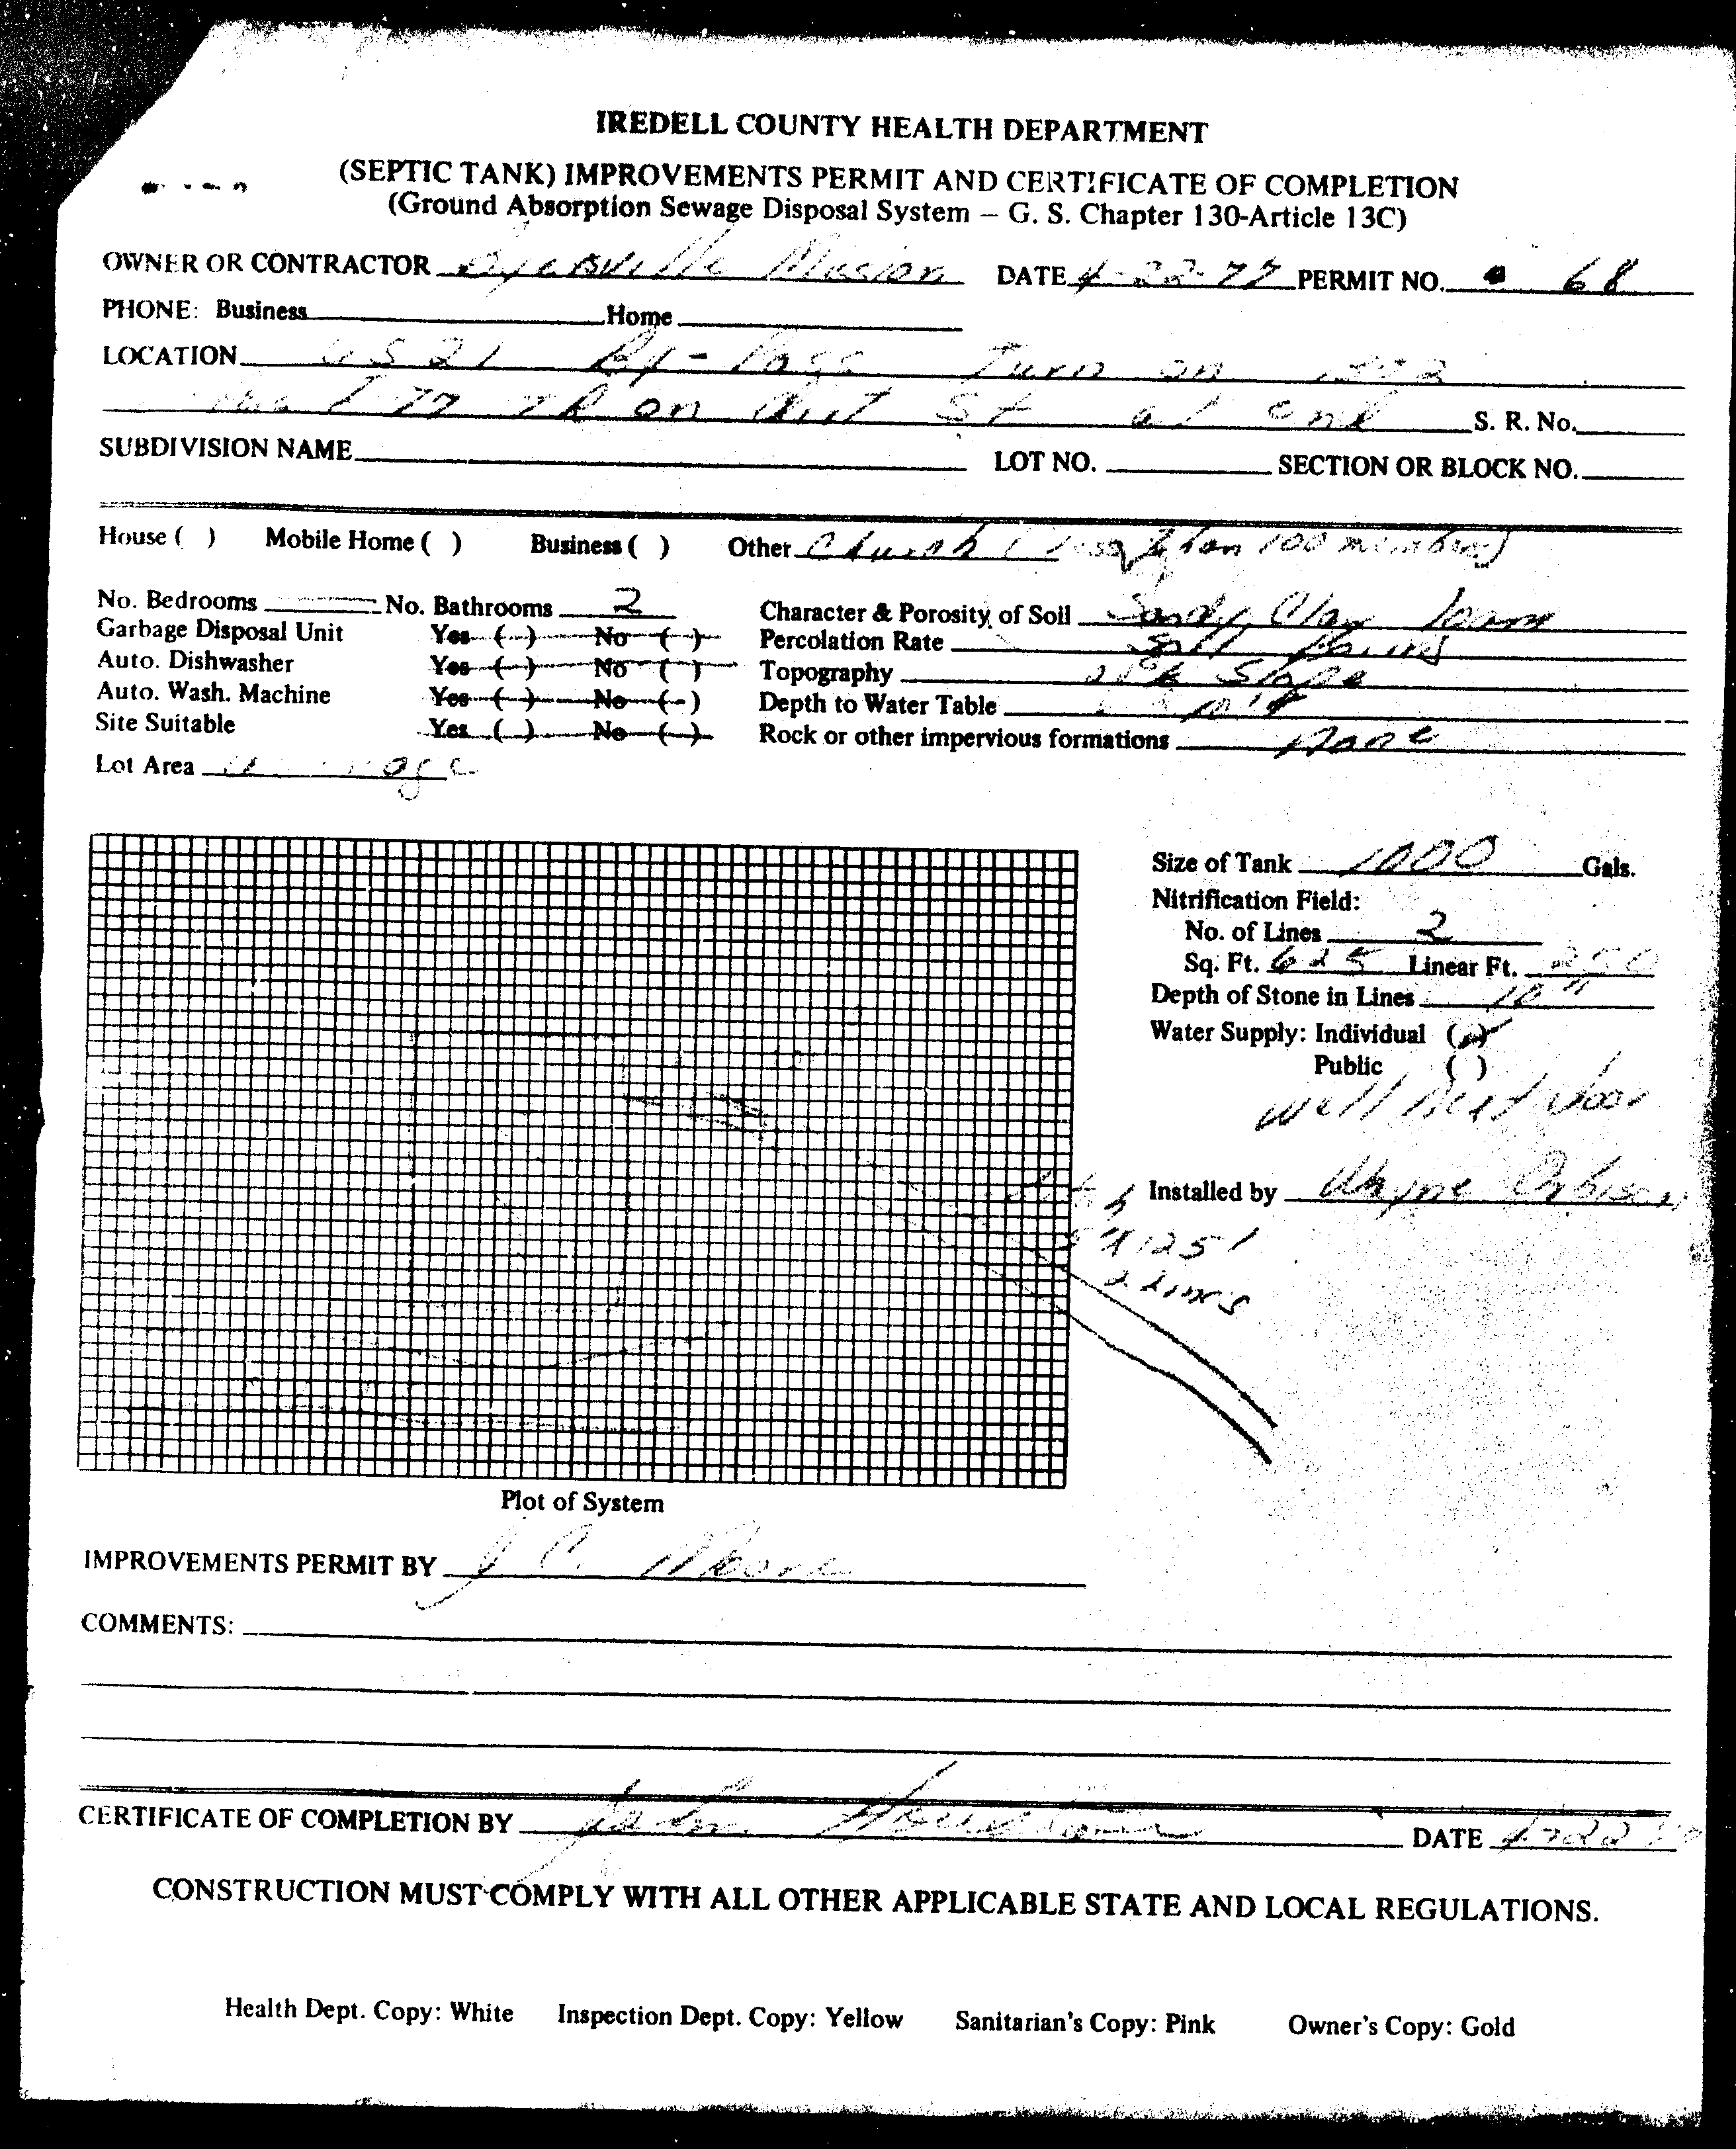 IREDELL COUNTY HEALTH DEPARTMENT
(SEPTIC TANK) IMPROVEMENTS PERMIT AND CERTIFICATE OF COMPLETION
(Ground Absorption Sewage Disposal System – G. S. Chapter 130-Article 13C)
OWNER OR CONTRACTOR DATE 4-22-77 PERMIT NO. 68
PHONE: Business Home
LOCATION US 21 By-Pass Turn on
I 77 on St at end S. R. No.
SUBDIVISION NAME LOT NO. SECTION OR BLOCK NO.
House ( ) Mobile Home ( ) Business ( ) Other Church (less than 100 members)
No. Bedrooms No. Bathrooms 2 Character & Porosity of Soil Sandy Clay loam
Garbage Disposal Unit Yes ( ) No ( ) Percolation Rate
Auto. Dishwasher Yes ( ) No ( ) Topography Slope
Auto. Wash. Machine Yes ( ) No ( ) Depth to Water Table
Site Suitable Yes ( ) No ( ) Rock or other impervious formations None
Lot Area
Size of Tank 1000 Gals.
Nitrification Field:
No. of Lines 2
Sq. Ft. 625 Linear Ft. 250
Depth of Stone in Lines 10"
Water Supply: Individual (✓)
Public ( )
Well Next door
Installed by Wayne
125'
2 Lines
Plot of System
IMPROVEMENTS PERMIT BY J C Moore
COMMENTS:
CERTIFICATE OF COMPLETION BY John DATE
CONSTRUCTION MUST COMPLY WITH ALL OTHER APPLICABLE STATE AND LOCAL REGULATIONS.
Health Dept. Copy: White Inspection Dept. Copy: Yellow Sanitarian's Copy: Pink Owner's Copy: Gold